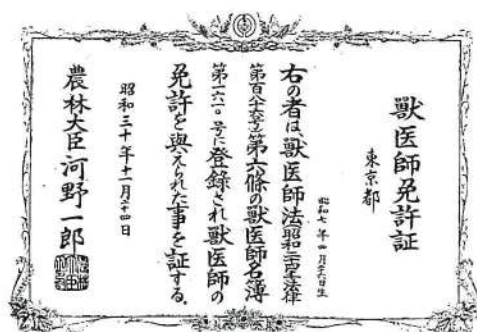 獣医師免許証
東京都
昭和七年四月二十六日生
右の者は、獣医師法昭和二十四年法律
第百八十六号第六條の獣医師名簿
第一六一〇号に登録され獣医師の
免許を與えられた事を証する。
昭和三十年十一月二十四日
農林大臣 河野一郎